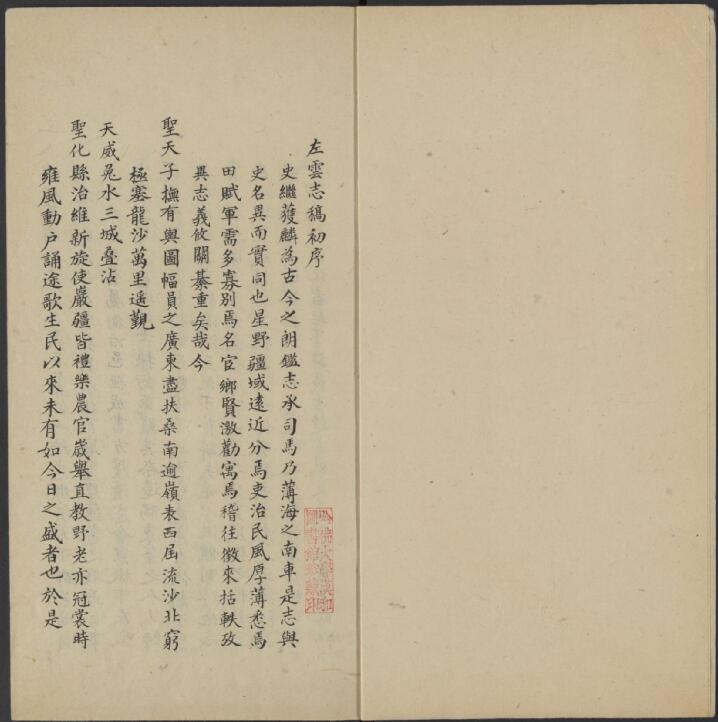 左雲志稿初序
史繼獲麟為古今之朗鑑志承司馬乃薄海之南車是志與
史名異而實同也星野疆域遠近分焉吏治民風厚薄悉焉
田賦軍需多寡別焉名官鄉賢激勸寓焉稽往徵來括軼攷
異志義攸關綦重矣哉今
聖天子撫有輿圖幅員之廣東盡扶桑南逾嶺表西屆流沙北窮
極塞龍沙萬里遥觀
天威兎水三城疊沾
聖化縣治維新旋使巖疆皆禮樂農官歲舉直教野老亦冠裳時
雍風動户誦途歌生民以來未有如今日之盛者也於是
哈佛大學漢和
圖書館珍藏印